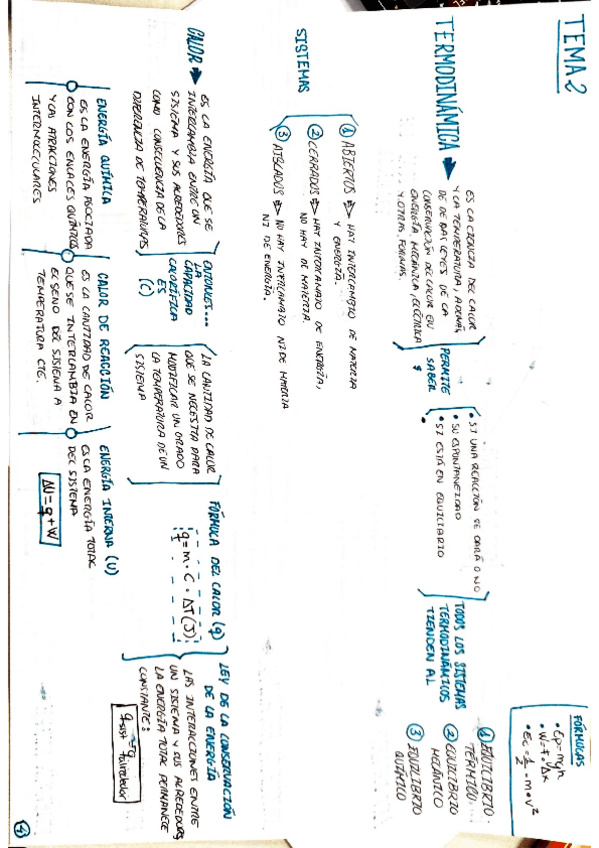 TEMA 2
FÓRMULAS
• Ep=mgh
• W=F·Δx
• Ec=1/2·m·v²
TERMODINÁMICA →
ES LA CIENCIA DEL CALOR
Y LA TEMPERATURA, ADEMÁS
DE LAS LEYES DE LA
CONSERVACIÓN DEL CALOR EN
ENERGÍA MECÁNICA, ELÉCTRICA
Y OTRAS FORMAS.
PERMITE
SABER
• SI UNA REACCIÓN SE DARÁ O NO
• SU ESPONTANEIDAD
• SI ESTÁ EN EQUILIBRIO
TODOS LOS SISTEMAS
TERMODINÁMICOS
TIENDEN AL
① EQUILIBRIO
TÉRMICO
② EQUILIBRIO
MECÁNICO
③ EQUILIBRIO
QUÍMICO
SISTEMAS
① ABIERTOS ⇒ HAY INTERCAMBIO DE MATERIA
Y ENERGÍA.
② CERRADOS ⇒ HAY INTERCAMBIO DE ENERGÍA,
NO HAY DE MATERIA.
③ AISLADOS ⇒ NO HAY INTERCAMBIO NI DE MATERIA
NI DE ENERGÍA.
CALOR →
ES LA ENERGÍA QUE SE
INTERCAMBIA ENTRE UN
SISTEMA Y SUS ALREDEDORES
COMO CONSECUENCIA DE LA
DIFERENCIA DE TEMPERATURAS
ENTONCES...
LA
CAPACIDAD
CALORÍFICA
ES
(C)
LA CANTIDAD DE CALOR
QUE SE NECESITA PARA
MODIFICAR UN GRADO
LA TEMPERATURA DE UN
SISTEMA
FÓRMULA DEL CALOR (q)
q=m·C·ΔT(J)
LEY DE LA CONSERVACIÓN
DE LA ENERGÍA
LAS INTERACCIONES ENTRE
UN SISTEMA Y SUS ALREDEDORES
LA ENERGÍA TOTAL PERMANECE
CONSTANTE:
ENERGÍA QUÍMICA
ES LA ENERGÍA ASOCIADA
CON LOS ENLACES QUÍMICOS
Y LAS ATRACCIONES
INTERMOLECULARES
CALOR DE REACCIÓN
ES LA CANTIDAD DE CALOR
QUE SE INTERCAMBIA EN
EL SENO DEL SISTEMA A
TEMPERATURA CTE.
ENERGÍA INTERNA (U)
ES LA ENERGÍA TOTAL
DEL SISTEMA
ΔU=q+W